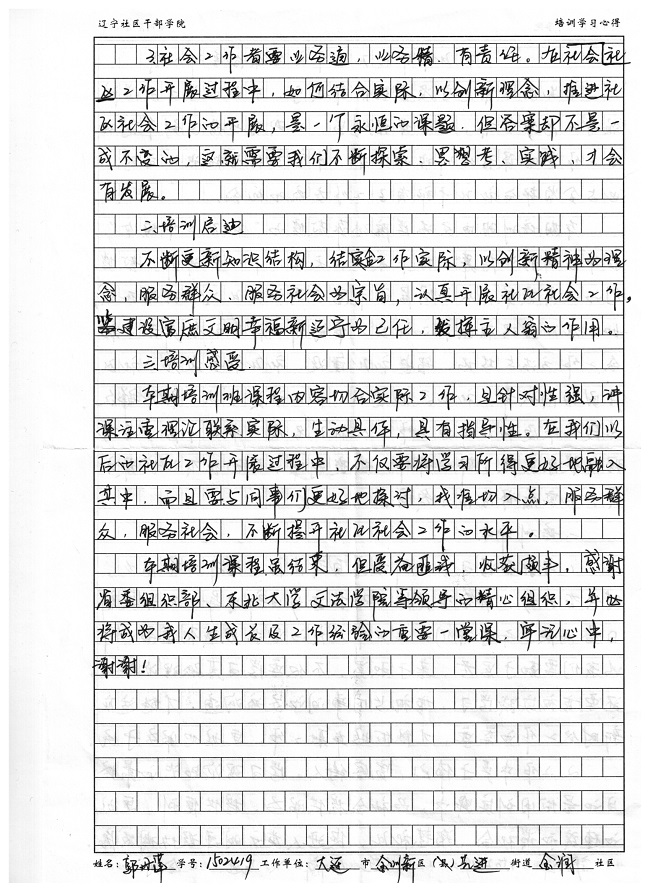 辽宁社区干部学院 培训学习心得
3社会工作者要业务通，业务精，有责任。在社会社
区工作开展过程中，如何结合实际，以创新理念，推进社
区社会工作的开展，是一个永恒的课题。但答案却不是一
成不变的，这就需要我们不断探索、思想考、实践，才会
有发展。
二培训启迪
不断更新知识结构，结合工作实际，以创新精神的理
念，服务群众、服务社会的宗旨，认真开展社区社会工作。
建设富庶文明幸福新辽宁的己任，发挥主人翁的作用。
三培训感受
本期培训班课程内容切合实际工作，且针对性强，讲
课注重理论联系实际，生动具体，具有指导性。在我们以
后的社区工作开展过程中，不仅要将学习所得更好地融入
其中，而且要与同事们更好地探讨，找准切入点，服务群
众，服务社会，不断提升社区社会工作的水平。
本期培训课程虽结束，但受益匪浅，收获颇丰，感谢
省委组织部、东北大学文法学院等领导的精心组织，并必
将成为我人生成长及工作经验的重要一堂课，牢记心中，
谢谢！
姓名：郭 学号：1502419 工作单位：大连 市 金州新区（县）先进 街道 金润 社区